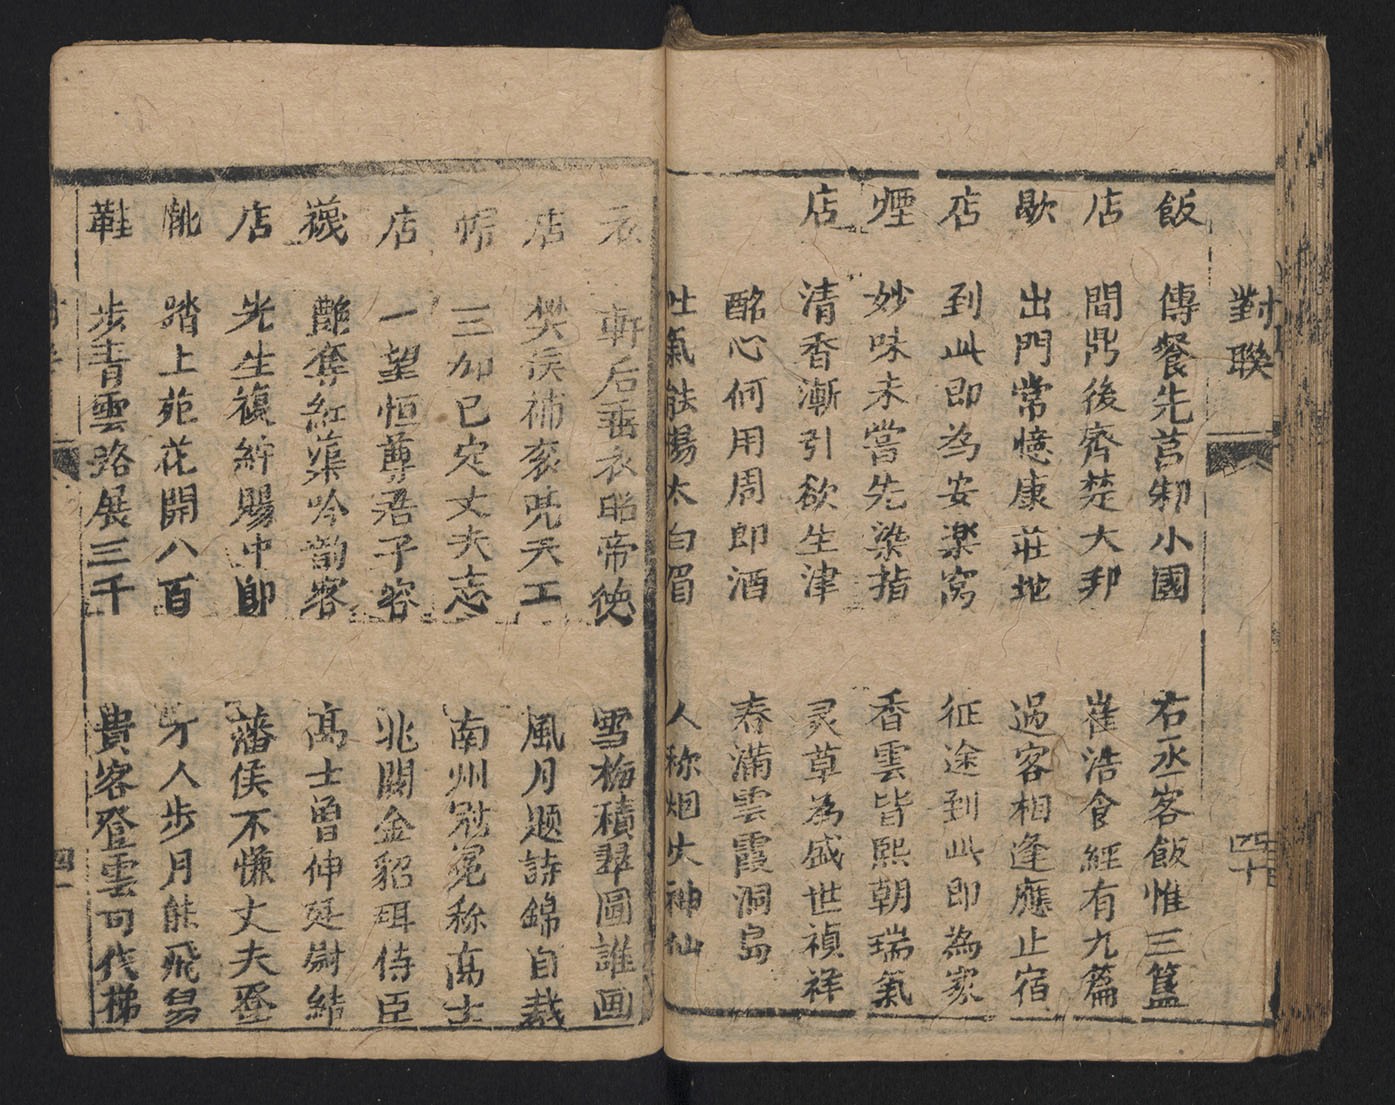 對聯
四十
飯 傳餐先莒邾小國 右丞客飯惟三簋
店 間鼎後齊楚大邦 崔浩食經有九篇
歇 出門常憶康莊地 過客相逢應止宿
店 到此即為安楽窩 征途到此即為家
煙 妙味未嘗先染指 香雲皆熙朝瑞氣
店 清香漸引欲生津 灵草為盛世禎祥
酩心何用周即酒 春滿雲霞洞島
吐氣能揚太白眉 人称烟火神仙
衣 軒后垂衣昭帝徳 雪梅積翠圖誰画
店 樊侯補衮兠天工 風月题詩錦自裁
帽 三加已定丈夫志 南州冠冕称高士
店 一望恒尊君子容 北闕金貂珥侍臣
襪 艷奪紅蕖吟韵客 高士曾伸廷尉結
店 先生複綷賜中郎 藩侯不慊丈夫登
靴 踏上苑花開八百 才人步月能飛舄
鞋 步青雲路展三千 貴客登雲可代梯
四一